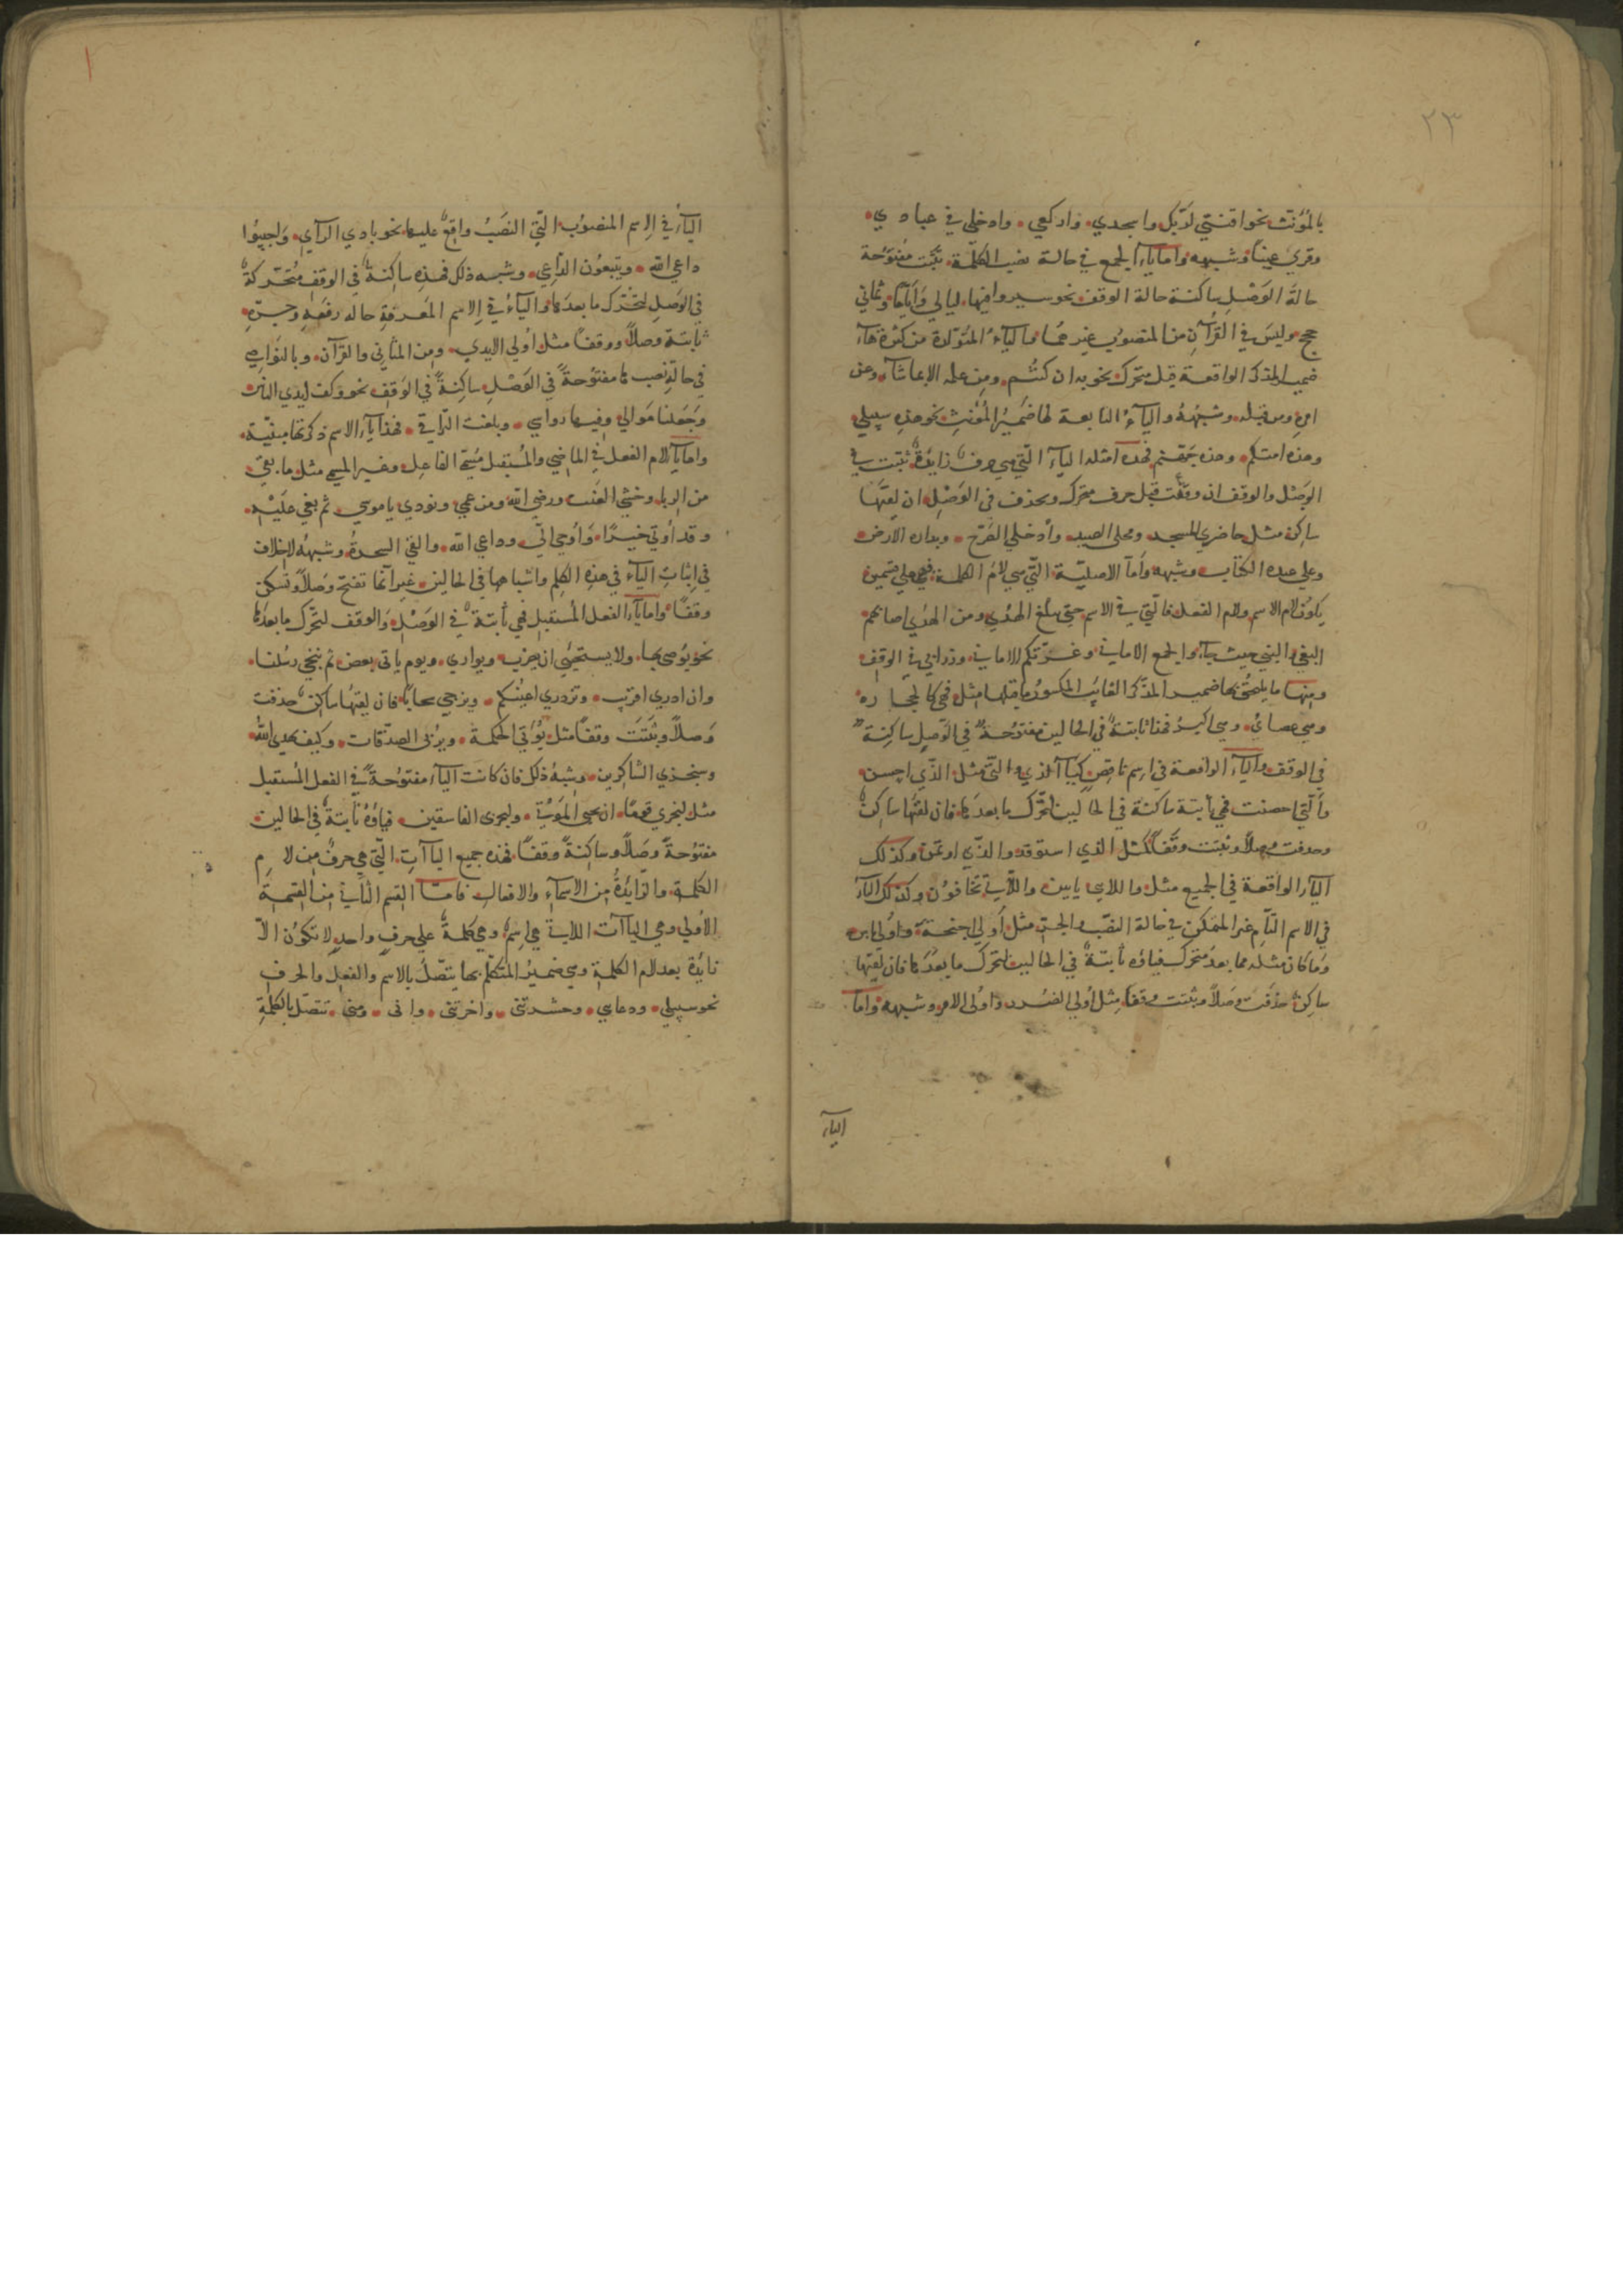 ٢٣
بالمؤنث نحو اقنتي لربك واسجدي واركعي وادخلي في عبادي
وقري عينا وشبهه واما ياء الجمع في حالة نصب الكلمة ثبتت مفتوحة
حالة الوصل ساكنة حالة الوقف نحو سيروا فيها ليالي وأياما وثماني
حجج وليس في القرآن من المنصوب غيرهما والياء المتولدة من كثرة هاء
ضمير المذكر الواقعة قبل متحرك نحو به ان كنتم ومن علمه الا بما شاء وعن
امره ومن قبله وشبهه والياء التابعة لها ضمير المؤنث نحو هذه سبيلي
وهذه امتكم وهذه جهنم فهذه امثلة الياء التي هي حرف زايدة ثبتت في
الوصل والوقف ان وقعت قبل حرف متحرك ويحذف في الوصل ان لقتها
ساكن مثل حاضري المسجد ومحلي الصيد وأدخلي الصرح وبداره الارض
وعلى عبده الكتاب وشبهه وأما الاصلية التي هي لام الكلمة فهي على قسمين
يكون لام الاسم ولام الفعل فالتي في الاسم حتى يبلغ الهدي ومن الهدي اصابهم
البغي والبغي حيث جاء والجمع الاماني وغرتكم الاماني وزرابي في الوقف
ومنها ما يلحق بها ضمير المذكر الغائب المكسور ما قبلها مثل فهي كالحجارة
وهي عصاي وهي اكبر فهذا ثابتة في الحالين مفتوحة في الوصل ساكنة
في الوقف والياء الواقعة في اسم ناقص كياء الذي والتي مثل الذي احسن
والتي احصنت فهي ثابتة ساكنة في الحالين لتحرك ما بعدها فان لقتها ساكن
وحذفت وصلا وثبتت وقفا كمثل الذي استوقد والذي اوتمن وكذلك
الياء الواقعة في الجميع مثل واللاي يايين واللاتي تخافون وكذلك الياء
في الاسم التام غير المتمكن في حالة النصب والجر مثل أولي اجنحة واولي بأس
وما كان مثله مما بعده متحرك فياؤه ثابتة في الحالين لتحرك ما بعدها فان لقتها
ساكن حذفت وصلا وثبتت وقفا مثل أولي الضرر واولي الامر وشبهه واما
الياء
١
الياء في الاسم المنصوب التي النصب واقع عليها نحو بادي الرأي وأجيبوا
داعي الله ويتبعون الداعي وشبه ذلك فهذه ساكنة في الوقف متحركة
في الوصل لتحرك ما بعدها والياء في الاسم المعرفة حاله رفعه وجره
ثابتة وصلا ووقفا مثل أولي الايدي ومن المثاني والقرآن وبالنواصي
في حالة نصبها مفتوحة في الوصل ساكنة في الوقف نحو وكف ايدي الناس
وجعلنا موالي وفيها رواسي وبلغت التراقي فهذا ياء الاسم ذكرتها مبينة
واما ياء لام الفعل في الماضي والمستقبل مسمى الفاعل وغير المسمى مثل ما بقي
من الربا وخشي العنت ورضي الله ومن عمي ونودي يا موسي ثم بغي عليه
وقد أوتي خيرا وأوحي الي وداعي الله والقي السحرة وشبهه لا خلاف
في اثبات الياء في هذه الكلم واشباهها في الحالين غير انها تفتح وصلا وتسكن
وقفا واما ياء الفعل المستقبل فهي ثابتة في الوصل والوقف لتحرك ما بعدها
نحو يوصي بها ولا يستحيي ان يضرب ويواري ويوم ياتي بعض ثم ننجي رسلنا
وان ادري اقريب وتزدري اعينكم ويزجي سحابا فان لقتها ساكن حذفت
وصلا وثبتت وقفا مثل يؤتي الحكمة ويربي الصدقات وكيف يهدي الله
وسنجزي الشاكرين وشبه ذلك فان كانت الياء مفتوحة في الفعل المستقبل
مثل ليجزي قوما ان يحيي الموتي وليخزي الفاسقين فياؤه ثابتة في الحالين
مفتوحة وصلا وساكنة وقفا فهذه جميع الياآت التي هي حرف من لام
الكلمة والزائدة من الاسماء والافعال فاما القسم الثاني من القسمة
الاولي وهي الياآت اللاتي هي اسم وهي كلمة على حرف واحد لا تكون الا
زايدة بعد لام الكلمة وهي ضمير المتكلم بها يتصل بالاسم والفعل والحرف
نحو سبيلي ودعاي وحشرتني واخرتني واني ومني تتصل بالكلمة